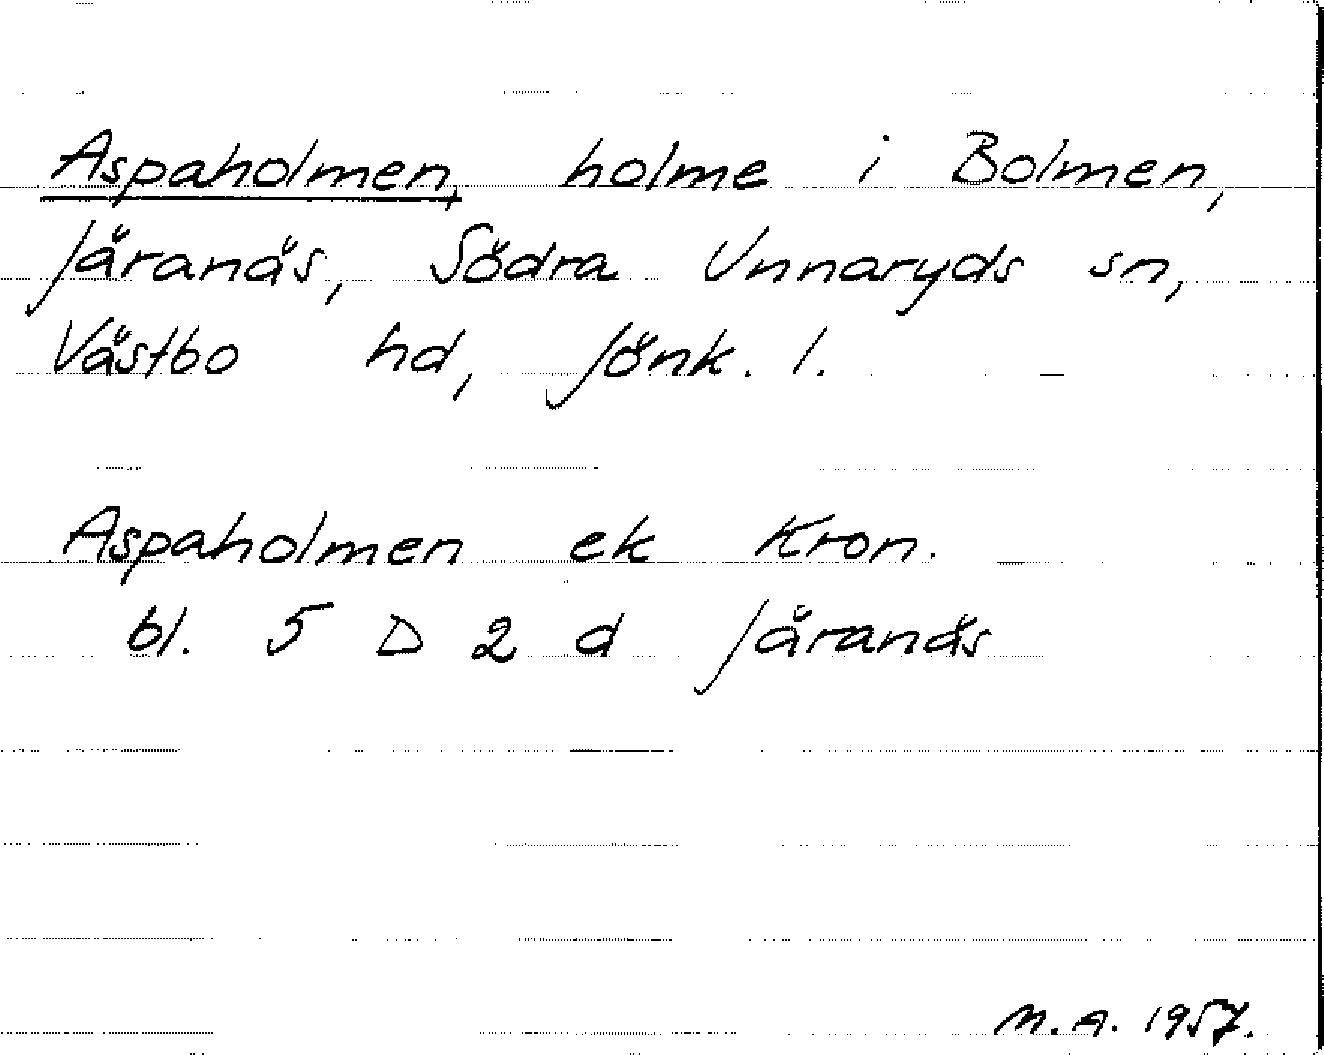 Aspaholmen, holme i Bolmen,
Järanäs, Södra Unnaryds sn,
Västbo hd, Jönk. l.
Aspaholmen ek Kron.
bl. 5 D 2 d Järanäs
M.A. 1957.